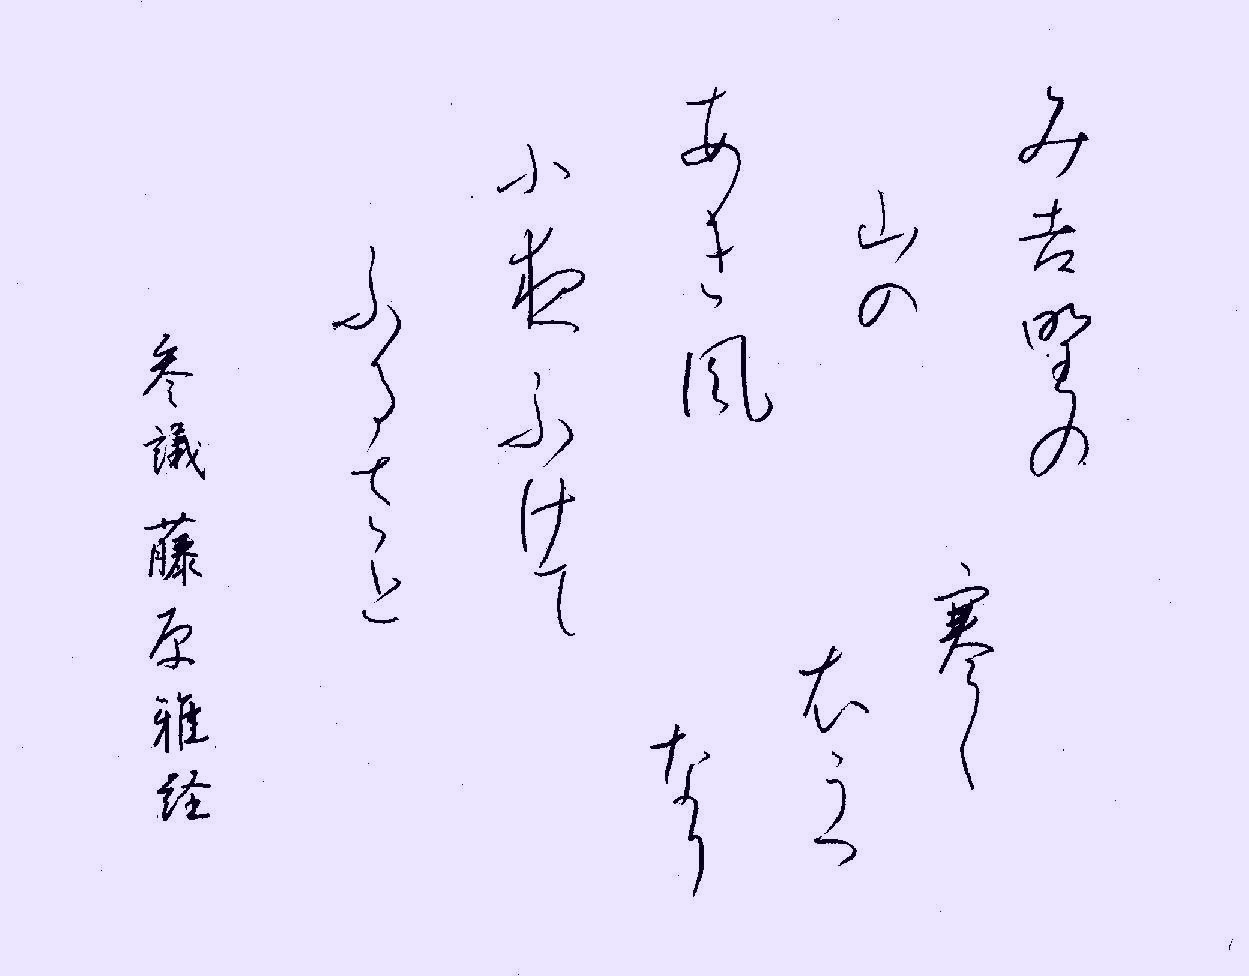 み吉野の
山の
あき風
小夜ふけて
ふるさと
寒く
衣うつ
なり
参議藤原雅経